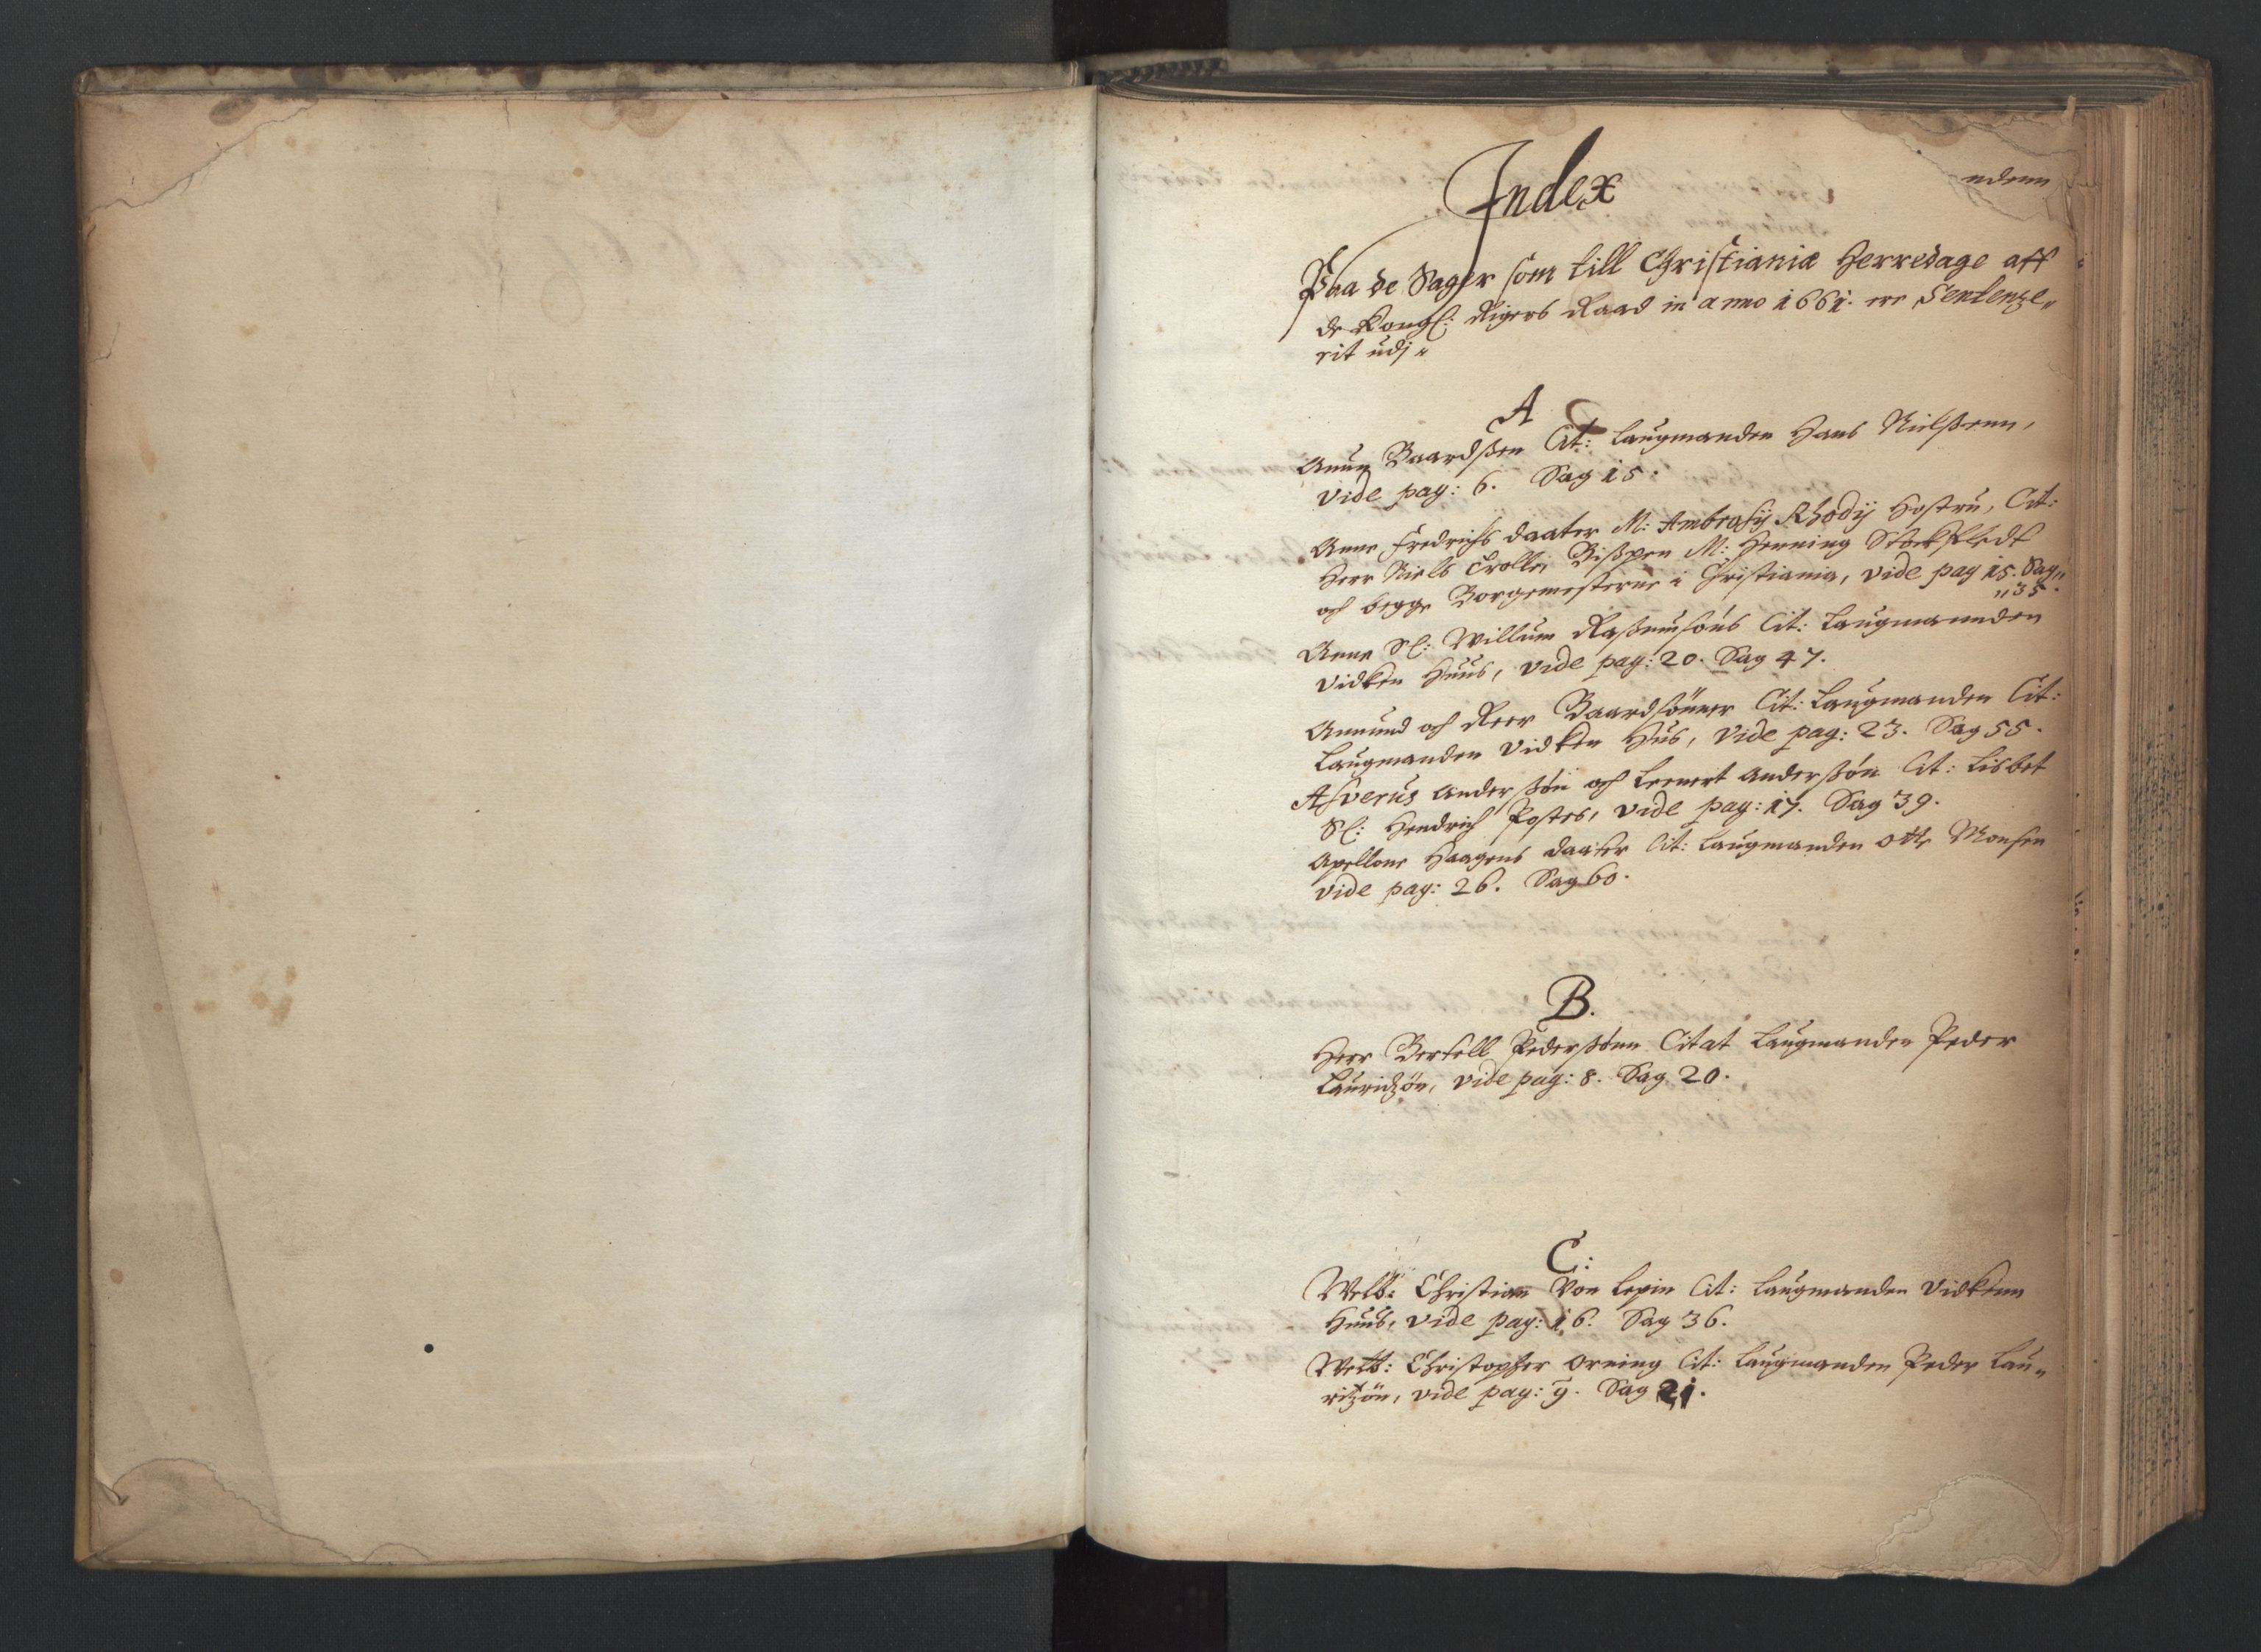 Index
ndenn
Paa de Sager som till Christianiæ Herredage aff
de Kongl: Rigens Raad in anno 1661. ere Sentenze„
rit udj„
A
Anun Baardßen Cit: Laugmanden Hans Nielßenn,
vide pag: 6. Sag 15.
Anne Fredrichs daater M: Ambrosij Rhodij Hostru, Cit:
Herr Niels Trolle, Bißpen M: Henning Stockfledt
och begge Borgemesterne i Christiania, vide pag 15. Sag„
„35.
Anne Sl: Willum Raßmusöns Cit: Laugmannden
Vidken Huus, vide pag: 20. Sag 47.
Amund och Reer Baardsönner Cit: Laugmanden Cit:
Laugmanden Vidken Hus, vide pag: 23. Sag 55.
Asverus Anderßön och Leenert Anderßön Cit: Lisbet
Sl: Hendrich Postes, vide pag: 17. Sag 39.
Apellone Haagens daater Cit: Laugmanden Otte Monsen
vide pag: 26. Sag 60.
B.
Herr Bertell Pederßönn Citat Laugmanden Peder
Lauridzön, vide pag: 8. Sag 20.
C:
Welb: Christian Von Lepin Cit: Laugmanden Vidkenn
Huus, vide pag: 16. Sag 36.
Welb: Christopher Orning Cit: Laugmanden Peder Lau„
ritzön, vide pag: 9. Sag 21.